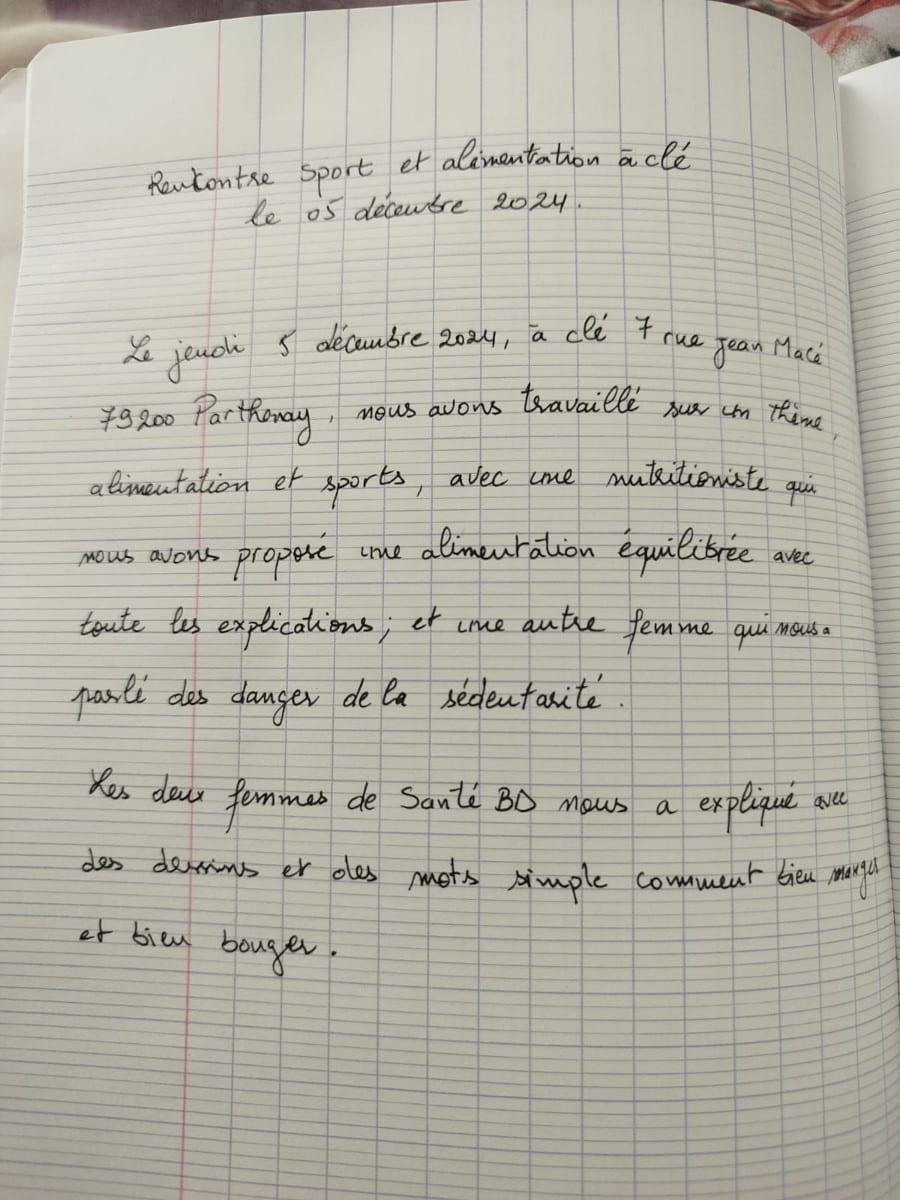 Rencontre Sport et alimentation à clé
le 05 décembre 2024.
Le jeudi 5 décembre 2024, à clé 7 rue Jean Macé
79200 Parthenay, nous avons travaillé sur un thème,
alimentation et sports, avec une nutritioniste qui
nous avons proposé une alimentation équilibrée avec
toute les explications; et une autre femme qui nous a
parlé des danger de la sédentarité.
Les deux femmes de Santé BD nous a expliqué avec
des dessins et des mots simple comment bien manger
et bien bouger.